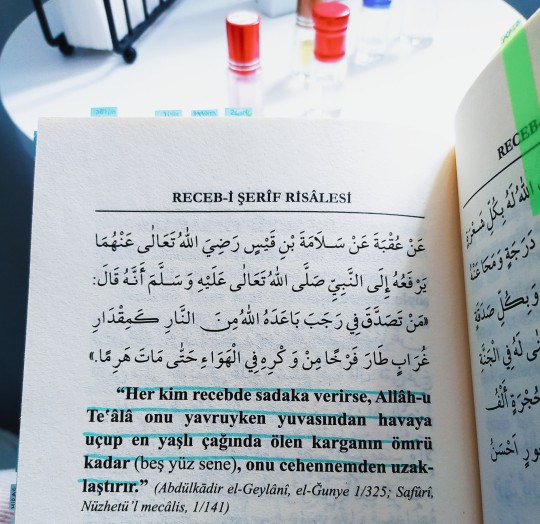 RECEB-İ ŞERÎF RİSÂLESİ
عَنْ عُقْبَةَ عَنْ سَلَامَةَ بْنِ قَيْسٍ رَضِيَ اللهُ تَعَالٰى عَنْهُمَا
يَرْفَعُهُ إِلَى النَّبِيِّ صَلَّى اللهُ تَعَالٰى عَلَيْهِ وَسَلَّمَ أَنَّهُ قَالَ:
«مَنْ تَصَدَّقَ فِي رَجَبَ بَاعَدَهُ اللهُ مِنَ النَّارِ كَمِقْدَارِ
غُرَابٍ طَارَ فَرْخًا مِنْ وَكْرِهِ فِي الْهَوَاءِ حَتّٰى مَاتَ هَرِمًا.»
“Her kim recebde sadaka verirse, Allâh-u
Te‘âlâ onu yavruyken yuvasından havaya
uçup en yaşlı çağında ölen karganın ömrü
kadar (beş yüz sene), onu cehennemden uzak-
laştırır.” (Abdülkādir el-Geylânî, el-Ğunye 1/325; Safûrî,
Nüzhetü'l mecâlis, 1/141)
RECEB-
اللهُ لَهُ بِكُلِّ
دَرَجَةً وَمَحَا عَنْهُ
وَبِكُلِّ صَدَقَةٍ
لَهُ فِي الْجَنَّةِ
حُجْرَةٍ أَلْفُ
أَحْسَنُ